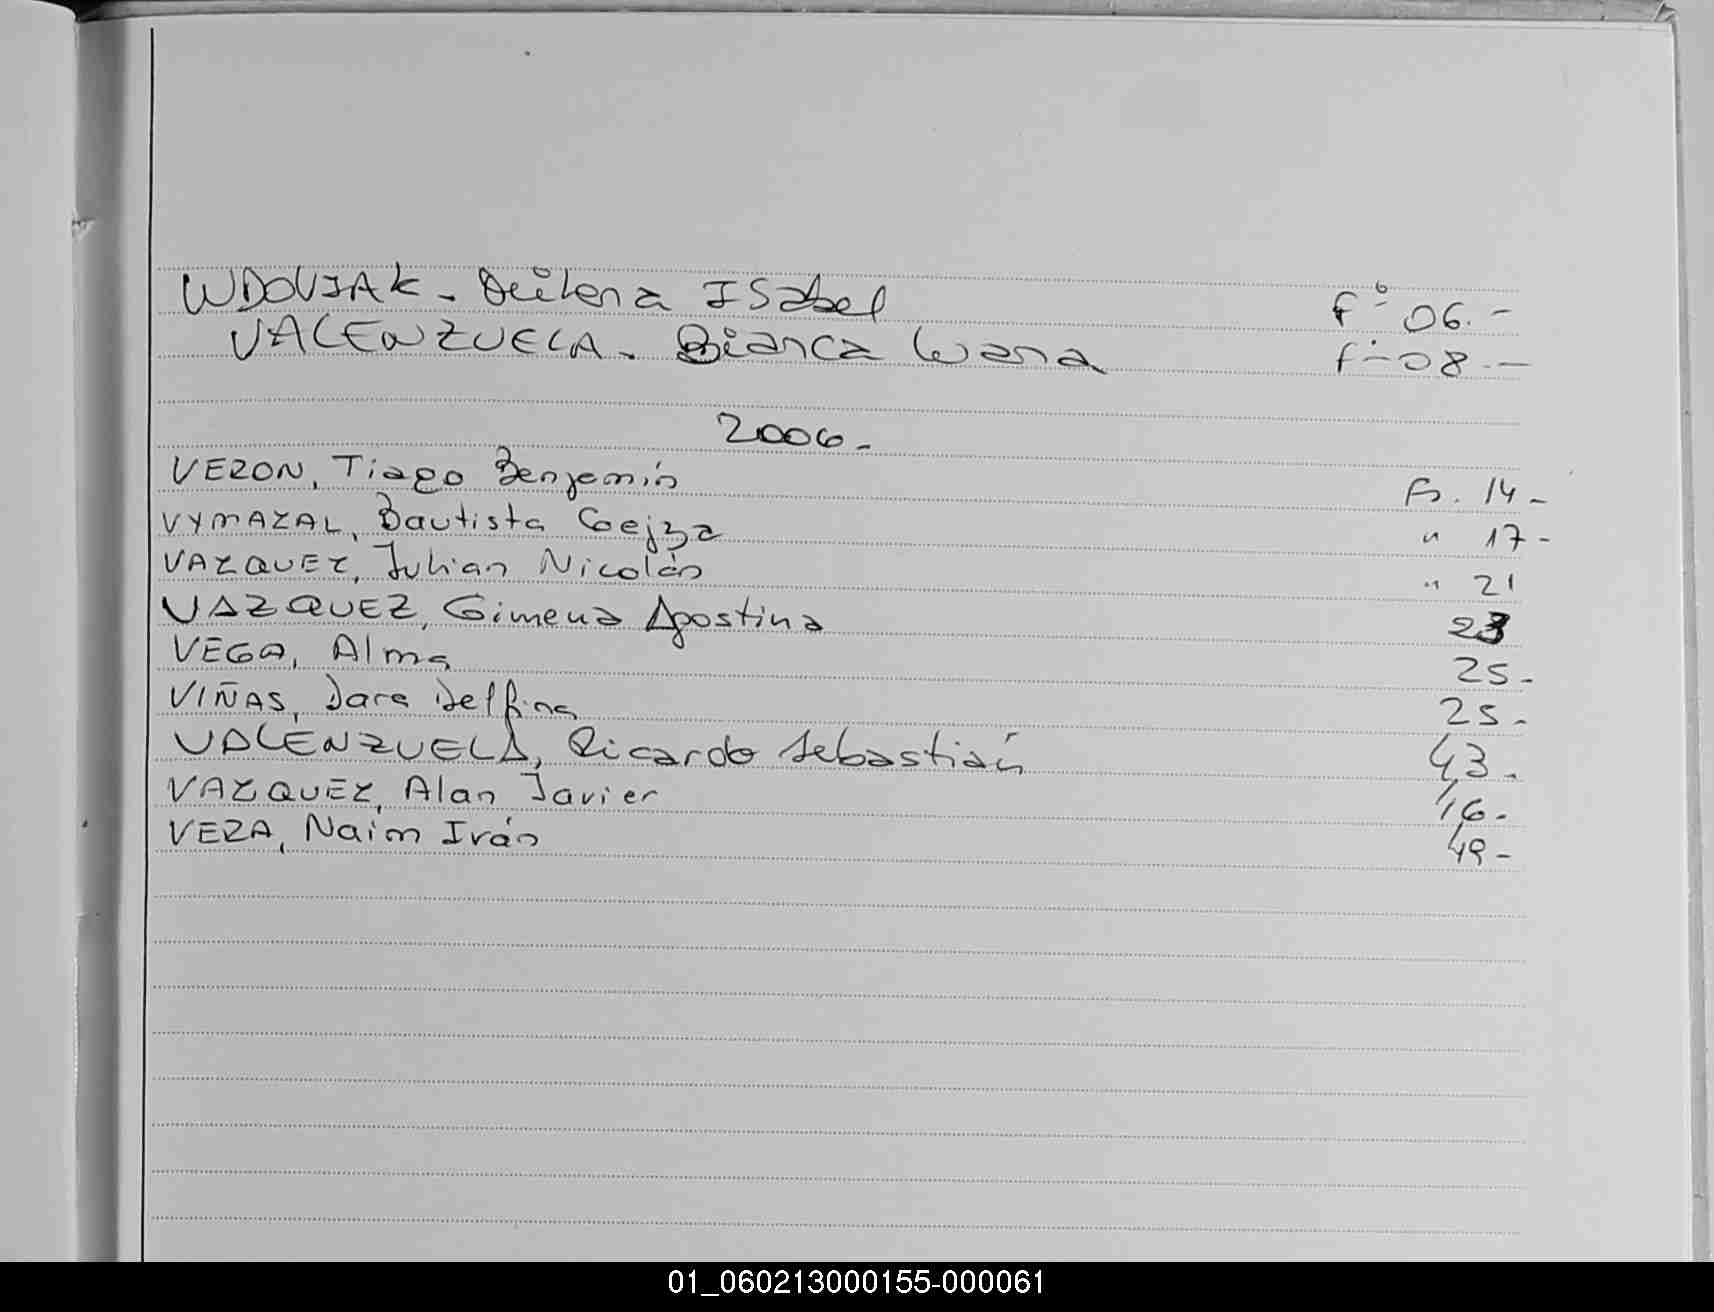 WDOVJAK - Milena ISabel Fº 06.-
VALENZUELA - Bianca Luana Fº 08.-
2006-
VERON, Tiago Benjamín Fo. 14-
VYMAZAL, Bautista " 17-
VAZQUEZ, Julian Nicolás " 21
VAZQUEZ, Gimena Agostina 23
VEGA, Alma 25-
VIÑAS, Dara Delfina 25-
VALENZUELA, Ricardo Sebastián 43-
VAZQUEZ, Alan Javier 16-
VERA, Naim Iván 49-
01_060213000155-000061